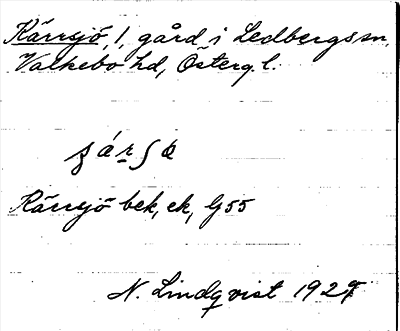 Kärrsjö, 1, gård i Ledbergs sn,
Valkebo hd, Österg. l.
Kärrsjö bek, ek, G55
N. Lindqvist 1927